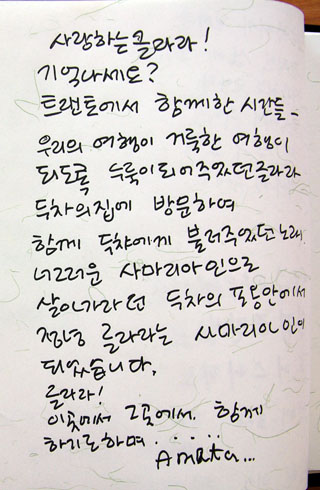 사랑하는 클라라!
기억나세요?
트렌토에서 함께한 시간들-
우리의 여행이 거룩한 여행이
되도록 누룩이 되어주었던 클라라
두차의 집에 방문하여
함께 두차에게 불러주었던 노래
너그러운 사마리아인으로
살아가라던 두차의 포옹안에서
정녕 클라라는 사마리아인이
되었습니다.
클라라!
이곳에서 그곳에서. 함께
하기도 하며.....
Amata...